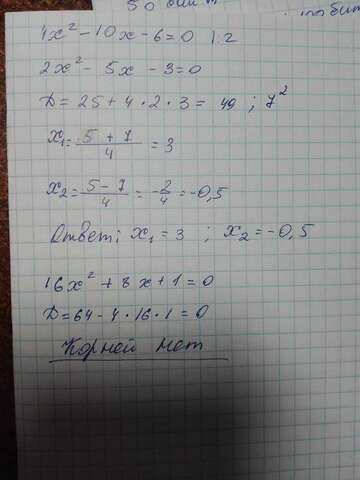 50 бит
4x² - 10x - 6 = 0 | : 2
2x² - 5x - 3 = 0
D = 25 + 4 · 2 · 3 = 49 ; 7²
x₁ = (5 + 7)/4 = 3
x₂ = (5 - 7)/4 = -2/4 = -0,5
Ответ: x₁ = 3 ; x₂ = -0,5
16x² + 8x + 1 = 0
D = 64 - 4 · 16 · 1 = 0
Корней нет